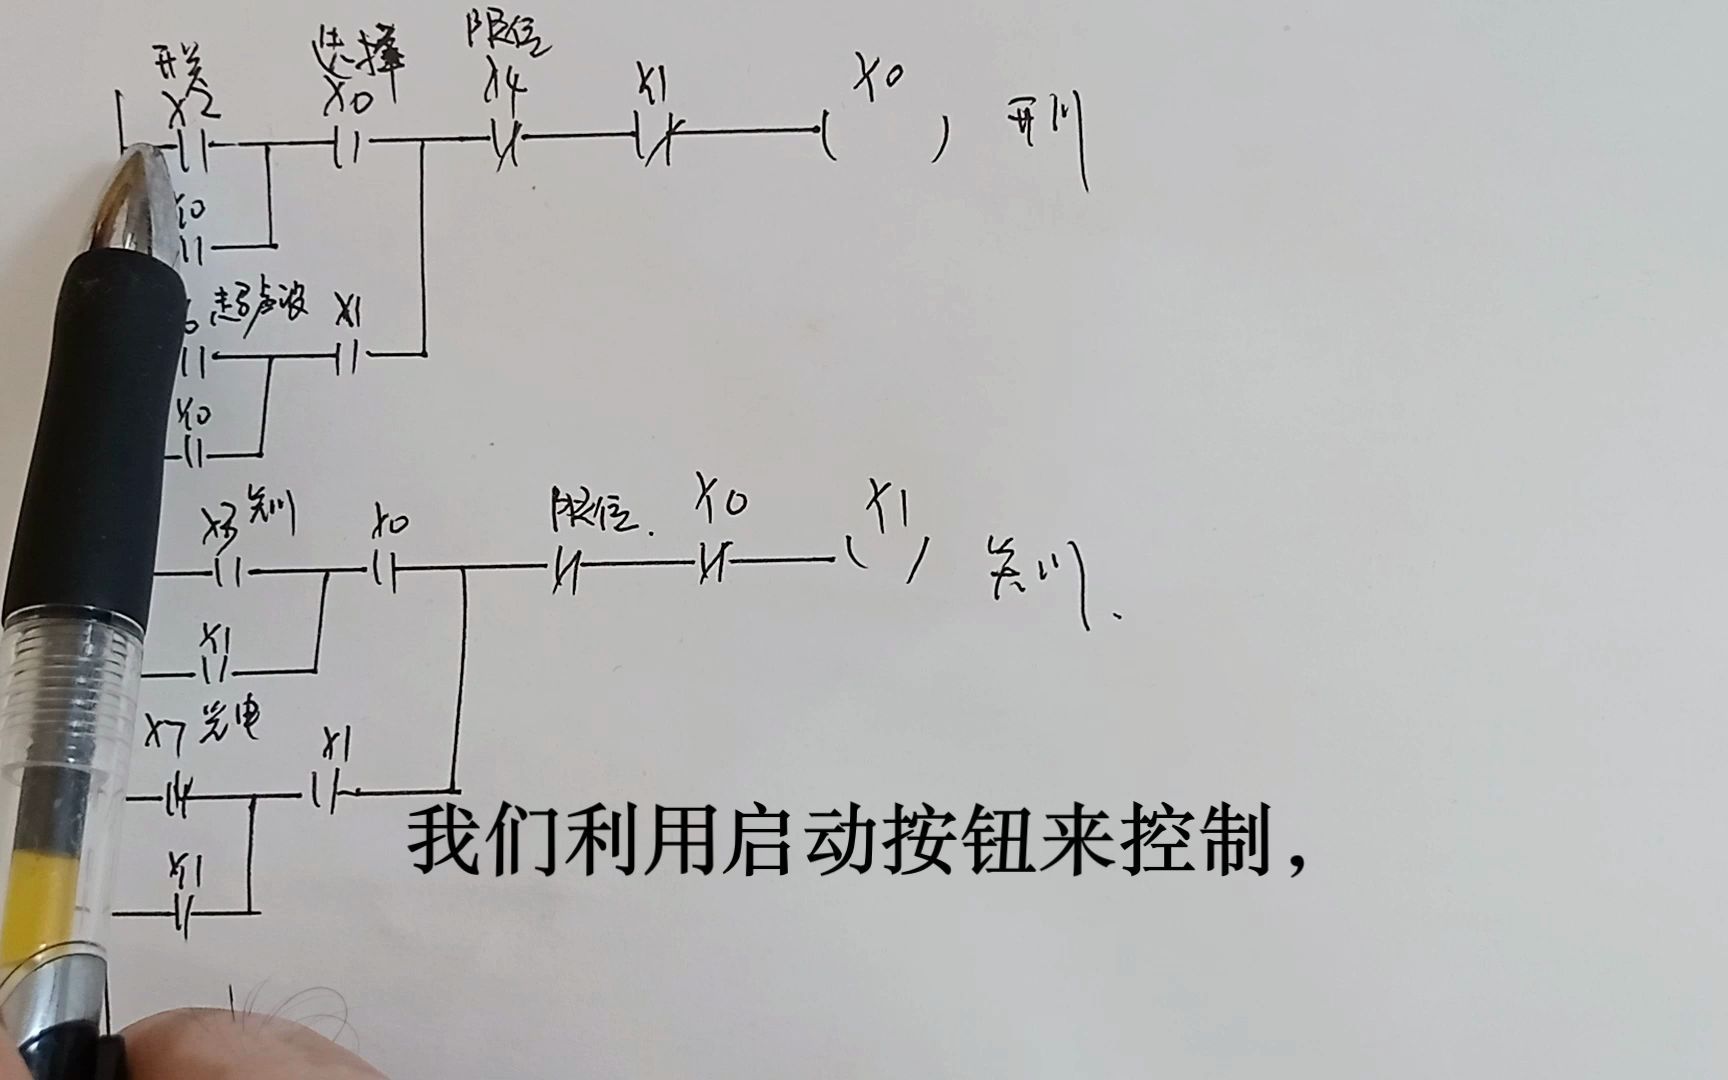 开关 选择 限位
X2 X0 X4 Y1 Y0 开门
Y0
超声波 X1
Y0
X3 关门 X0 限位. Y0 Y1 关门.
Y1
X7 光电 X1
Y1
我们利用启动按钮来控制，